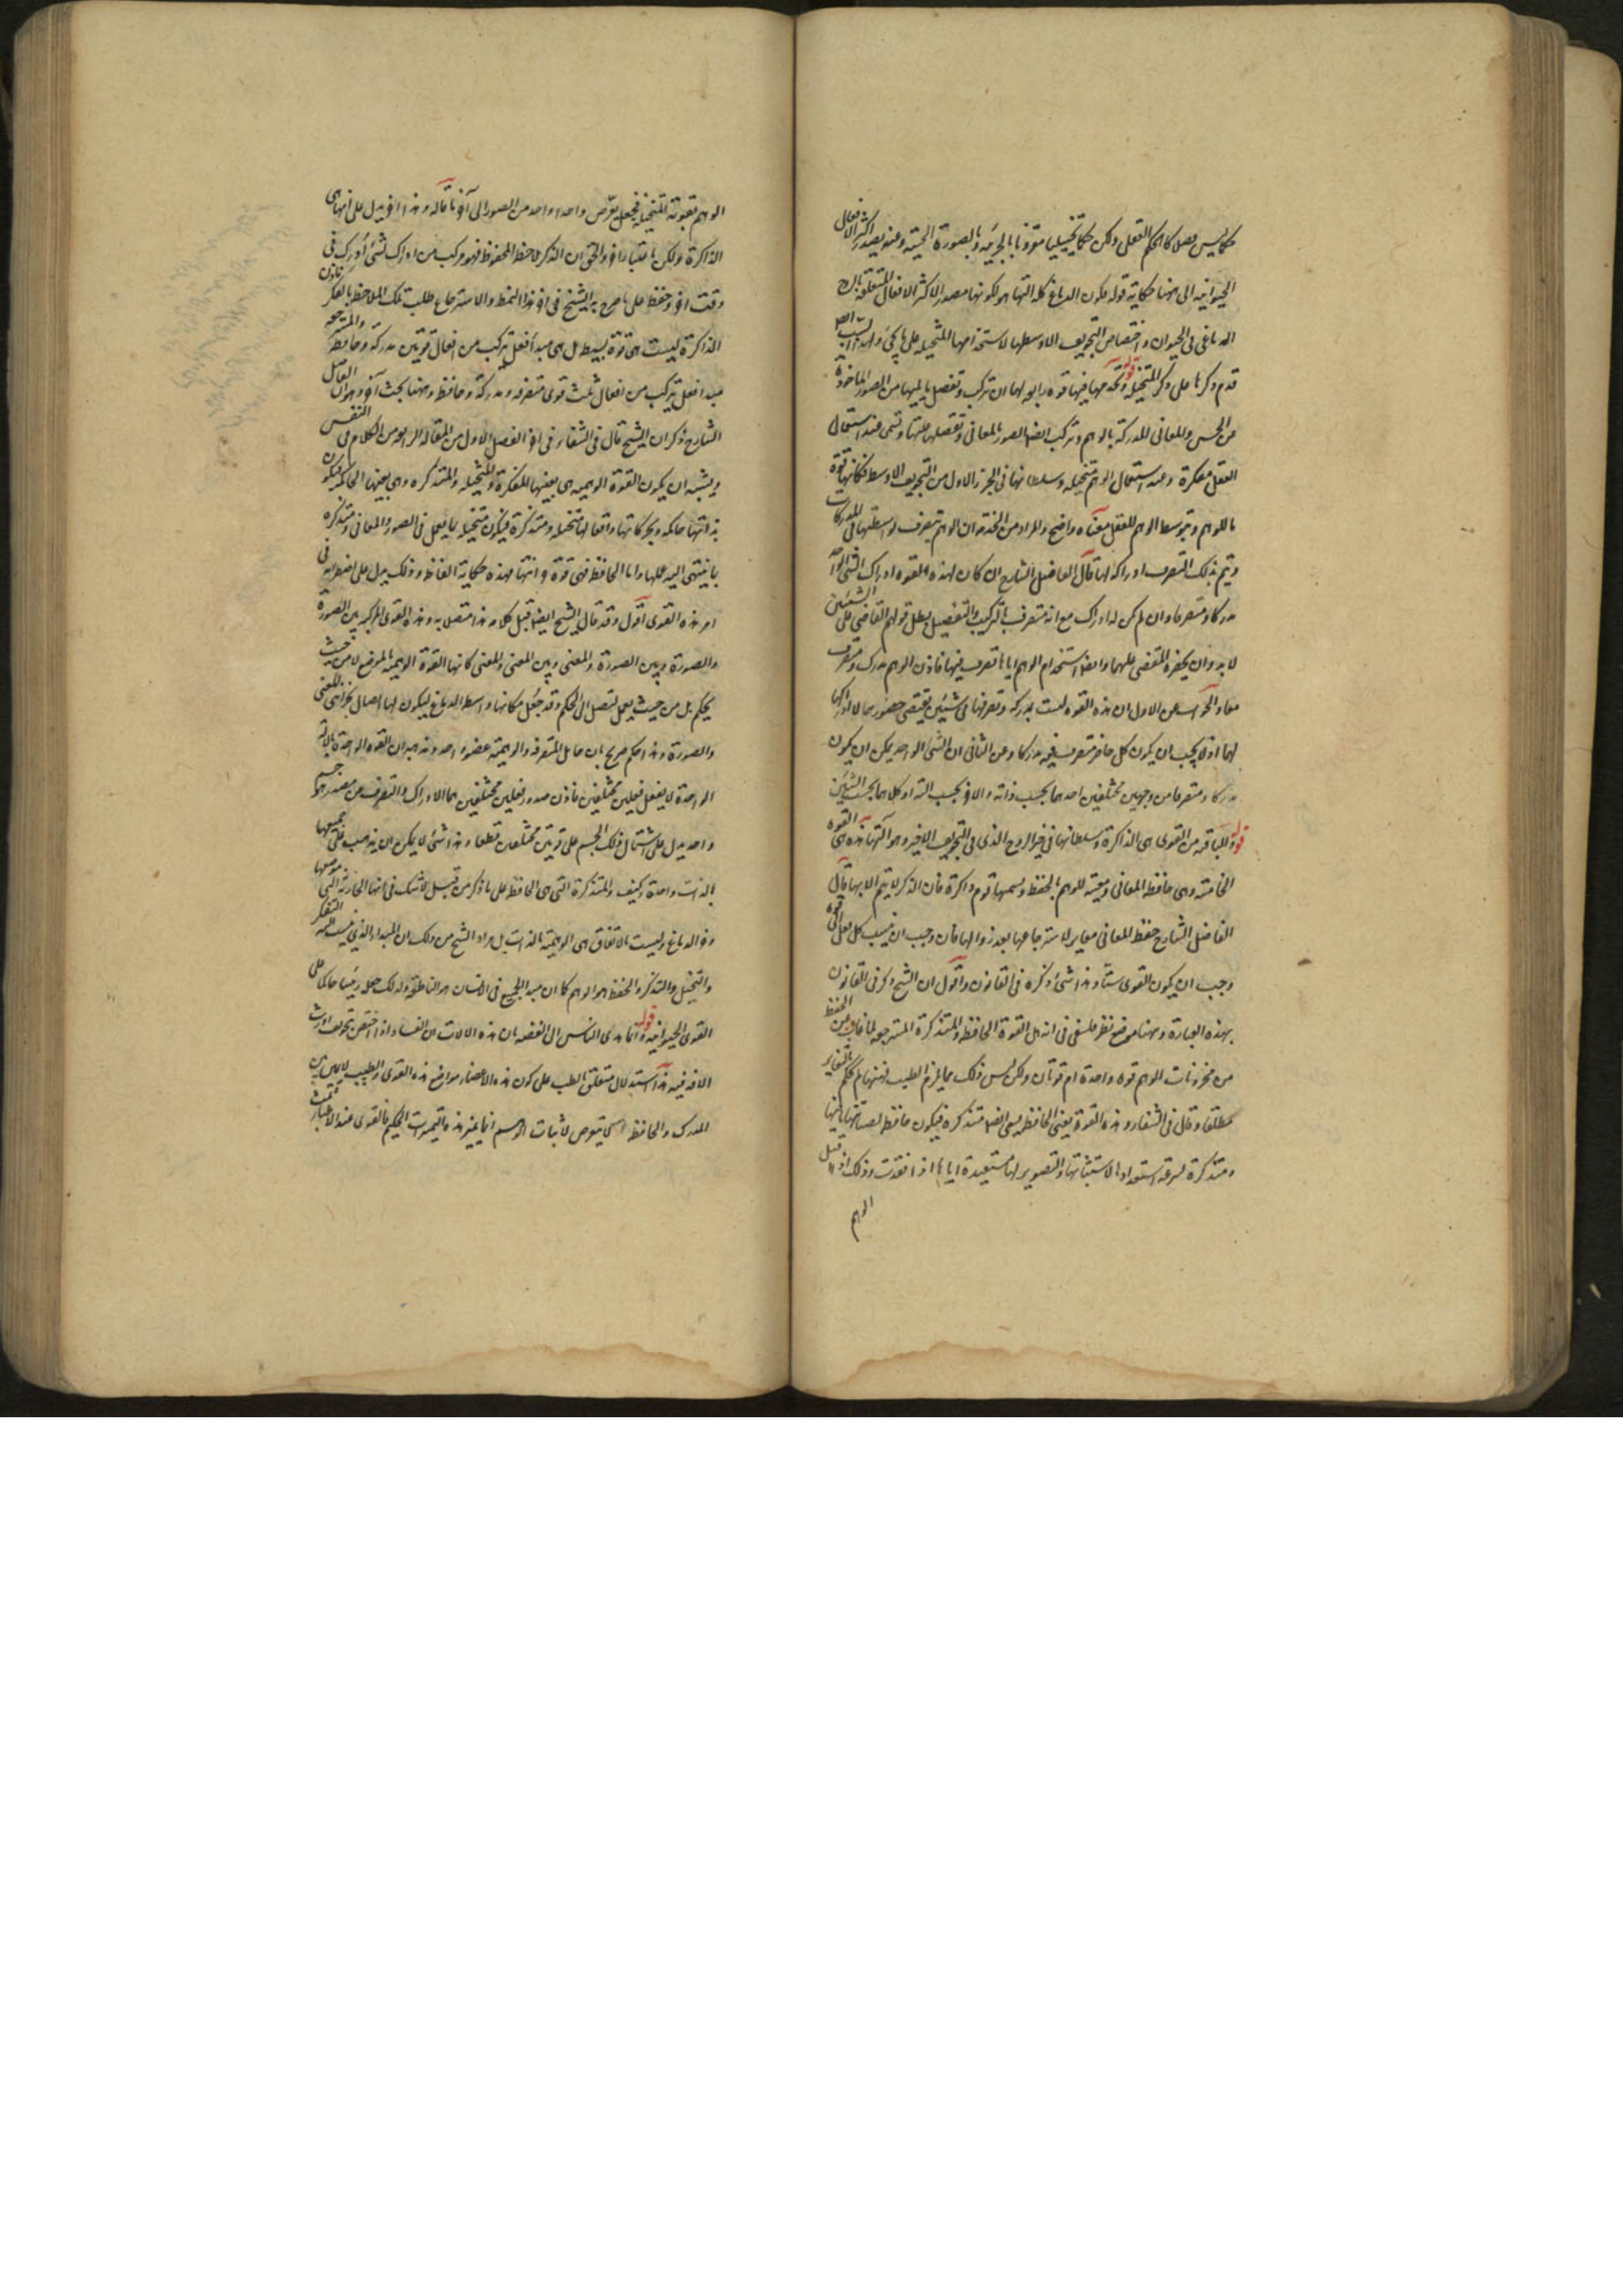 حكما ليس فصلا كالحكم العقلى ولكن حكما تخييليا مقرونا بالجزئية وبالصورة الحسية وعنه يصدر اكثر الافعال
الحيوانية الى ههنا حكاية قوله فكون الدماغ كله آلتها هو لكونها مصدر الاكثر الافعال المتعلقة بالروح
الدماغى فى الحيوان واختصاص التجويف الاوسط بها لاستخدامها المتخيلة على ما يجئ ولهذا السبب
قدم ذكرها على ذكر المتخيلة قوله وتخدمها فيها قوة رابعة لها ان تركب وتفصل ما يليها من الصور الماخوذة
عن الحس والمعانى المدركة بالوهم وتركب ايضا الصور بالمعانى وتفصلها عنها وتسمى عند استعمال
العقل مفكرة وعند استعمال الوهم متخيلة وسلطانها فى الجزء الاول من التجويف الاوسط فكانها قوة
ما للوهم وبتوسط الوهم للعقل معناه واضح والمراد من الخدمة ان الوهم يتصرف بواسطتها فى المدركات
ويتم بذلك التصرف ادراكه لها قال الفاضل الشارح ان كان لهذه القوة ادراك الشئ الواحد
مدركا ومتصرفا وان لم يكن له ادراك مع انه متصرف بالتركيب والتفصيل بطل قولهم القاضى على الشيئين
لا بد وان يحضره المقضى عليهما وايضا استخدام الوهم اياها تصرف فيها فاذن الوهم مدرك ومتصرف
معا والجواب عن الاول ان هذه القوة ليست بمدركة وتصرفها فى شيئين يقتضى حضورهما لا ادراكها
لهما اذ لا يجب ان يكون كل حاضر متصرف فيه مدركا وعن الثانى ان الشئ الواحد يمكن ان يكون
مدركا ومتصرفا من وجهين مختلفين احدهما بحسب ذاته والاخر بحسب آلته او كلاهما بحسب آلتين
قوله والباقية من القوى هى الذاكرة وسلطانها فى حيز الروح الذى فى التجويف الاخير وهو آلتها هذه هى القوة
الخامسة وهى حافظة المعانى ومعينة للوهم بالحفظ ويسميها قوم ذاكرة فان الذكر لا يتم الا بها قال
الفاضل الشارح حفظ المعانى مغاير لاسترجاعها بعد زوالها فان وجب ان ينسب كل فعل الى قوة
وجب ان يكون القوى ستا وهذا شئ ذكره فى القانون واقول ان الشيخ ذكر فى القانون
بهذه العبارة وههنا موضع نظر فلسفى فى انه هل القوة الحافظة والمتذكرة المسترجعة لما غاب عن الحفظ
من مخزونات الوهم قوة واحدة ام قوتان ولكن ليس ذلك مما يلزم الطبيب فههنا لم يحكم بالتغاير
مطلقا وقال فى الشفاء وهذه القوة يعنى الحافظة يسمى ايضا متذكرة فيكون حافظة لصيانتها ما فيها
ومتذكرة لسرعة استعدادها لاستثباتها والتصوير لها مستعيدة اياها اذا فقدت وذلك اذا اقبل
الوهم
الوهم بقوته المتخيلة فجعل يعرض واحدا واحدا من الصور الى آخر ما قاله وهذا اخر يدل على انها هى
الذاكرة ولكن باعتبار اخر والحق ان الذكر ملاحظة المحفوظ فهو مركب من ادراك لشئ أدرك فى
وقت اخر وحفظ على ما صرح به الشيخ فى اخر هذا النمط والاسترجاع طلب تلك الملاحظة بالفكر فاذن
الذاكرة ليست هى قوة بسيطة بل هى مبدأ فعل يتركب من افعال قوتين مدركة وحافظة والمسترجعة
مبدأ فعل يتركب من افعال ثلث قوى متصرفة ومدركة وحافظة وههنا بحث آخر وهو ان الفاضل
الشارح ذكر ان الشيخ قال فى الشفاء فى اخر الفصل الاول من المقالة الرابعة من الكلام فى النفس
ويشبه ان يكون القوة الوهمية هى بعينها المفكرة والمتخيلة والمتذكرة وهى بعينها الحاكمة فيكون
بذاتها حاكمة وبحركاتها وافعالها متخيلة ومتذكرة فيكون متخيلة بما يعمل فى الصور والمعانى ومتذكرة
بما ينتهى اليه عملها واما الحافظة فهى قوة خزانتها فهذه حكاية الفاظه وذلك يدل على اضطرابه فى
امر هذه القوى اقول وقد قال الشيخ ايضا قبل كلامه هذا متصلا به وهذه القوة المركبة بين الصورة
والصورة وبين الصورة والمعنى وبين المعنى والمعنى كانها القوة الوهمية بالموضع لا من حيث
يحكم بل من حيث يعمل لتصل الى الحكم وقد جعل مكانها وسط الدماغ ليكون لها اتصال بخزانتى المعنى
والصورة وهذا حكم صريح بان حامل المتصرفة والوهمية عضو واحد ومذهبه ان القوة الواحدة بالآلة
الواحدة لا يفعل فعلين مختلفين فاذن صدور فعلين مختلفين هما الادراك والتصرف عن مصدر هو جسم
واحد يدل على اشتمال ذلك الجسم على قوتين مختلفتين قطعا وهذا شئ لا يمكن ان يذهب على
بالذات واحدة وكيف والمتذكرة التى هى الحافظة على ما ذكر من قبل لا شك فى انها الخازنة التى موضعها
مؤخر الدماغ وليست بالاتفاق هى الوهمية بالذات بل مراد الشيخ من ذلك ان المبدأ الذى ينسب اليه التفكر
والتخيل والتذكر والحفظ هو الوهم كما ان مبدأ الجميع فى الانسان هو الناطقة ولذلك جعله رئيسا حاكما على
القوى الحيوانية قوله وانما هدى الناس الى القضية بان هذه الآلات ان الفساد اذا اختص بتجويف اورث
الافة فيه هذا استدلال متعلق بالطب على كون هذه الاعضاء مواضع هذه القوى والطبيب لا
المدرك والحافظة لا يتعرض لاثبات الوهم انما يميز هذه التميزات الحكيم فالقوى عند الاعتبار